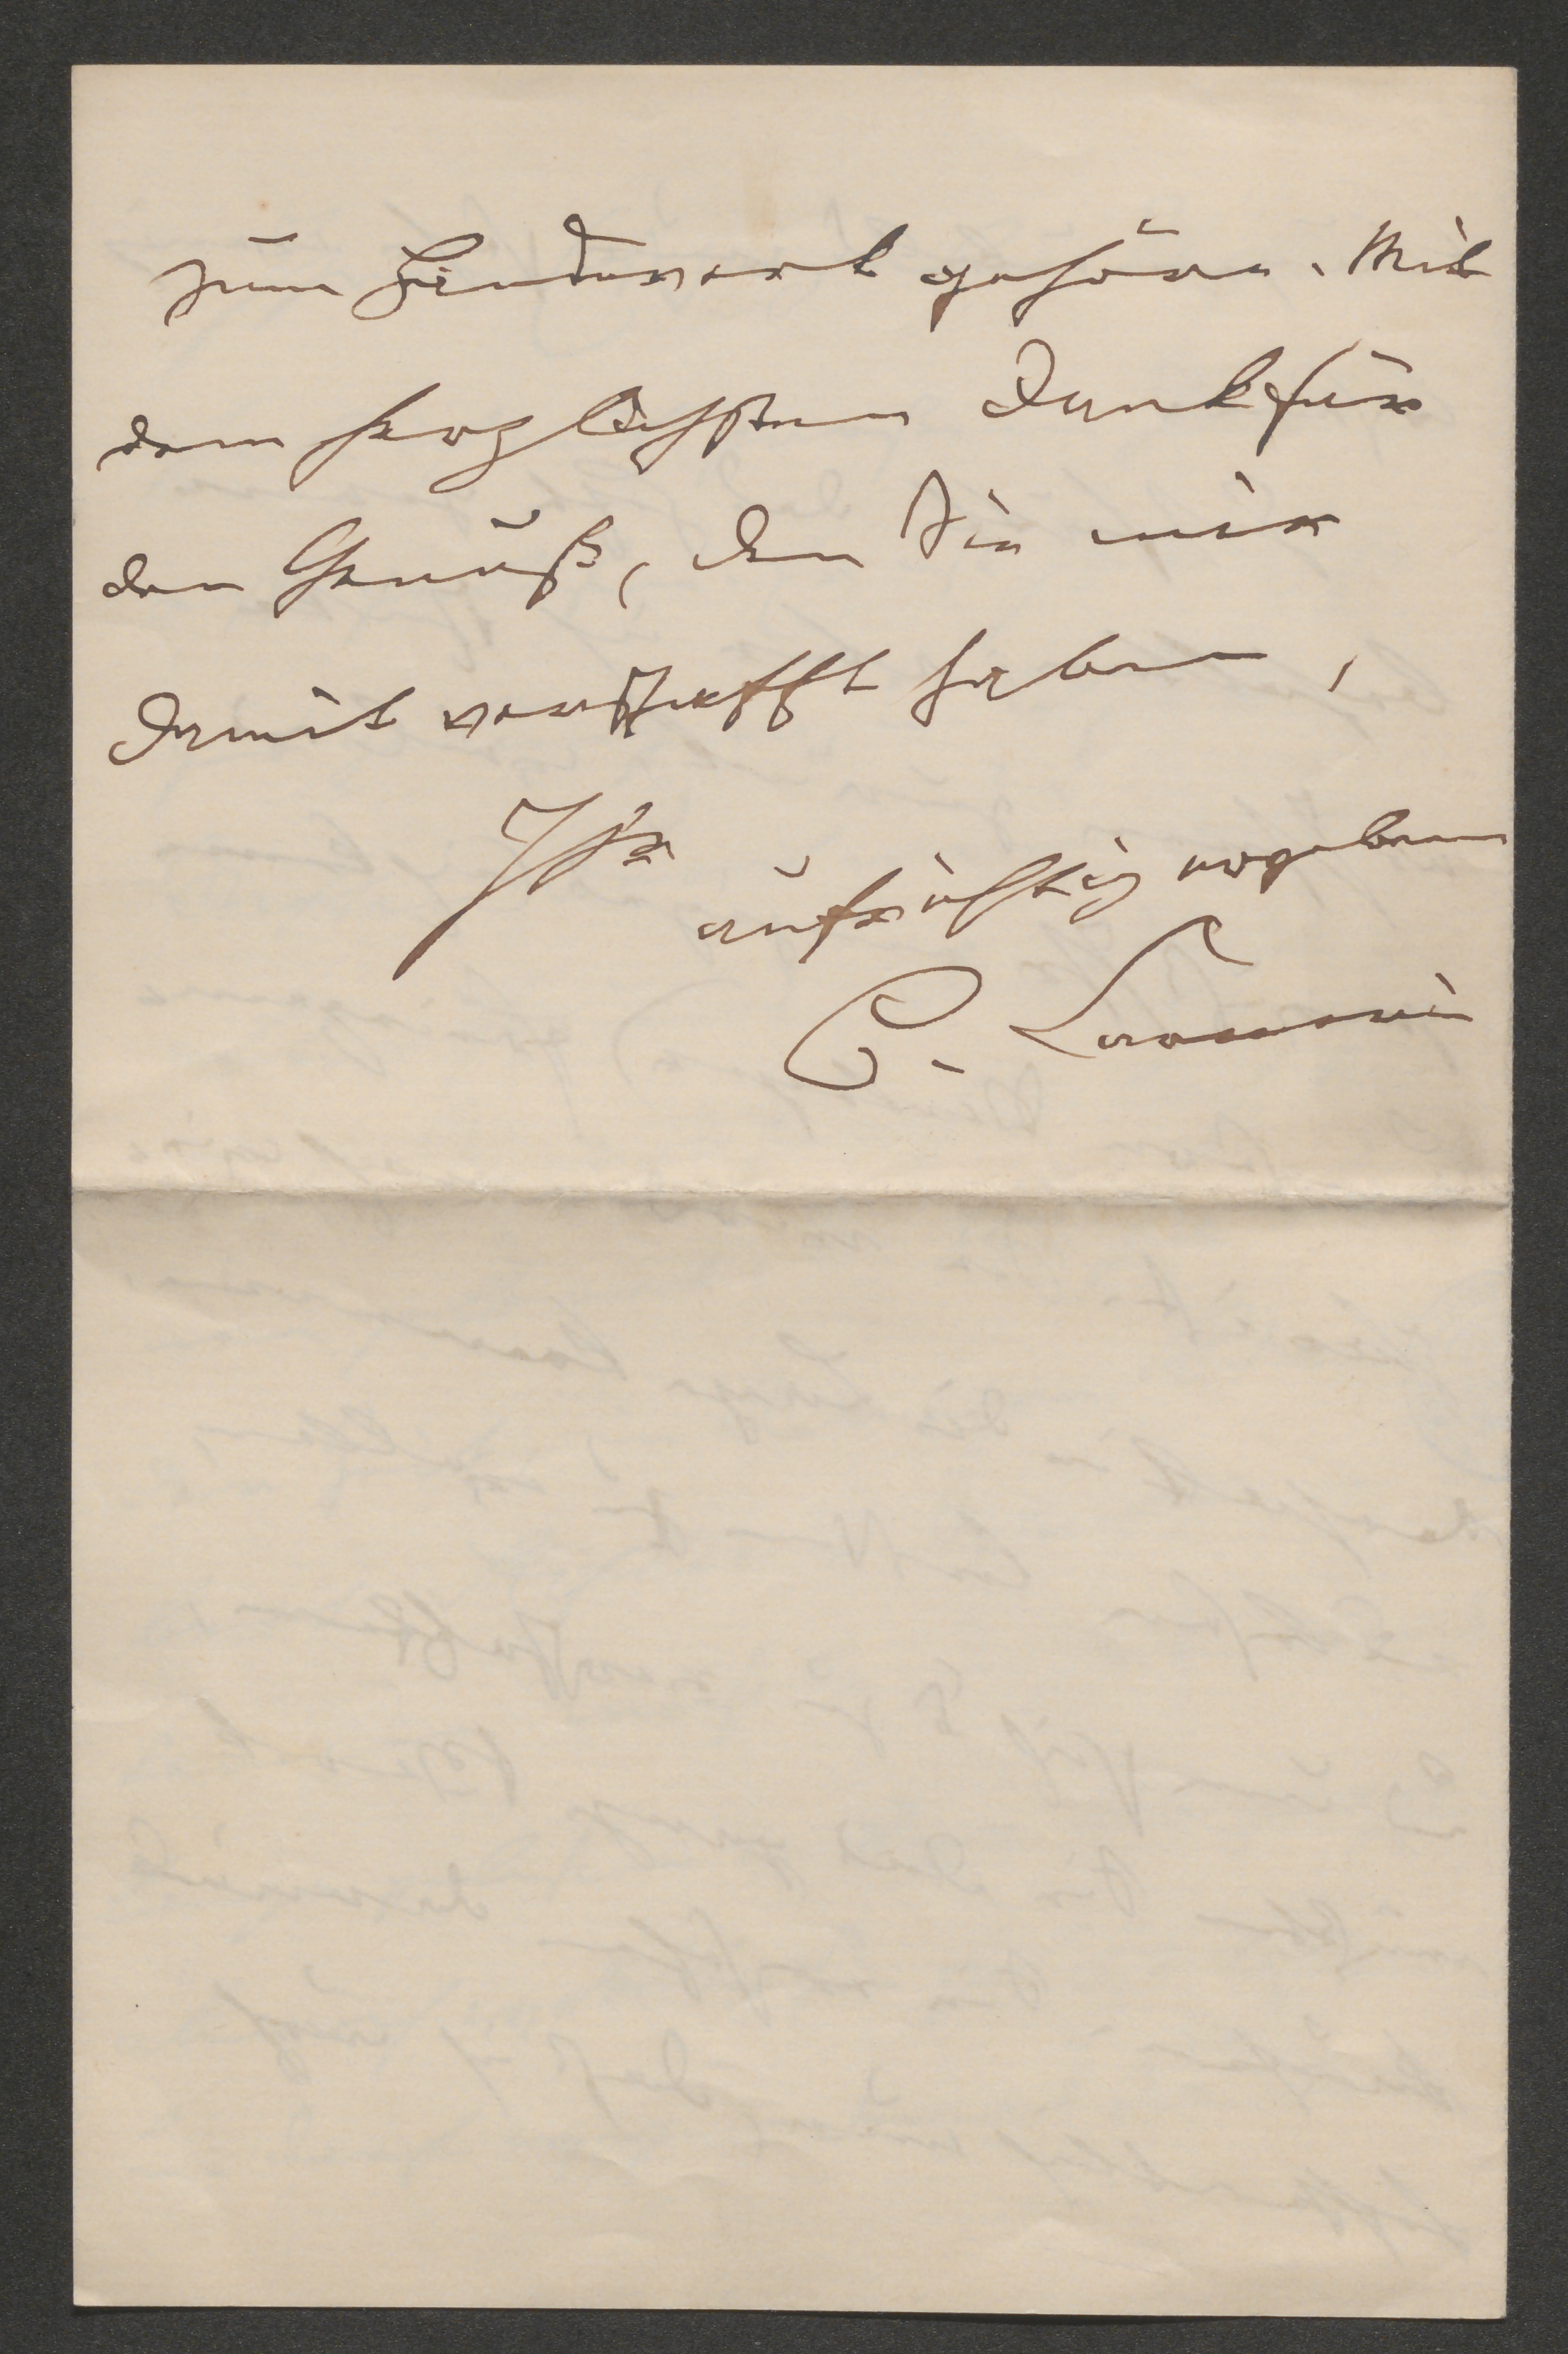 zum Handwerk gehöre. Mit
dem herzlichsten Dank für
den Genuß, den Sie mir
damit verschafft haben,
Ihr
aufrichtig ergebener
C.